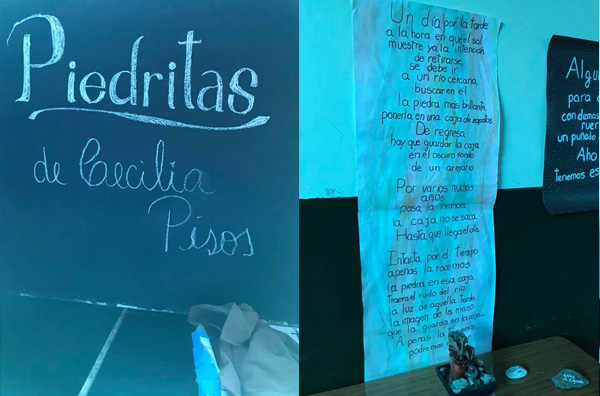 Piedritas
de Cecilia
Pisos
Un día por la tarde
a la hora en que el sol
muestre ya la intención
de retirarse,
se debe ir
a un río cercano,
buscar en él
la piedra más brillante,
ponerla en una caja de zapatos.
De regreso,
hay que guardar la caja
en el oscuro fondo
de un armario
Por varios muchos
años
pasa la infancia
la caja no se saca
Hasta que llega el día
Intacta por el tiempo
apenas la rocemos
la piedra en esa caja
traerá el ruido del río
la luz de aquella tarde
la imagen de la mano
que la guarda en la
A penas la
podremos
Algu
para
con demas
un puñado
Aho
tenemos es